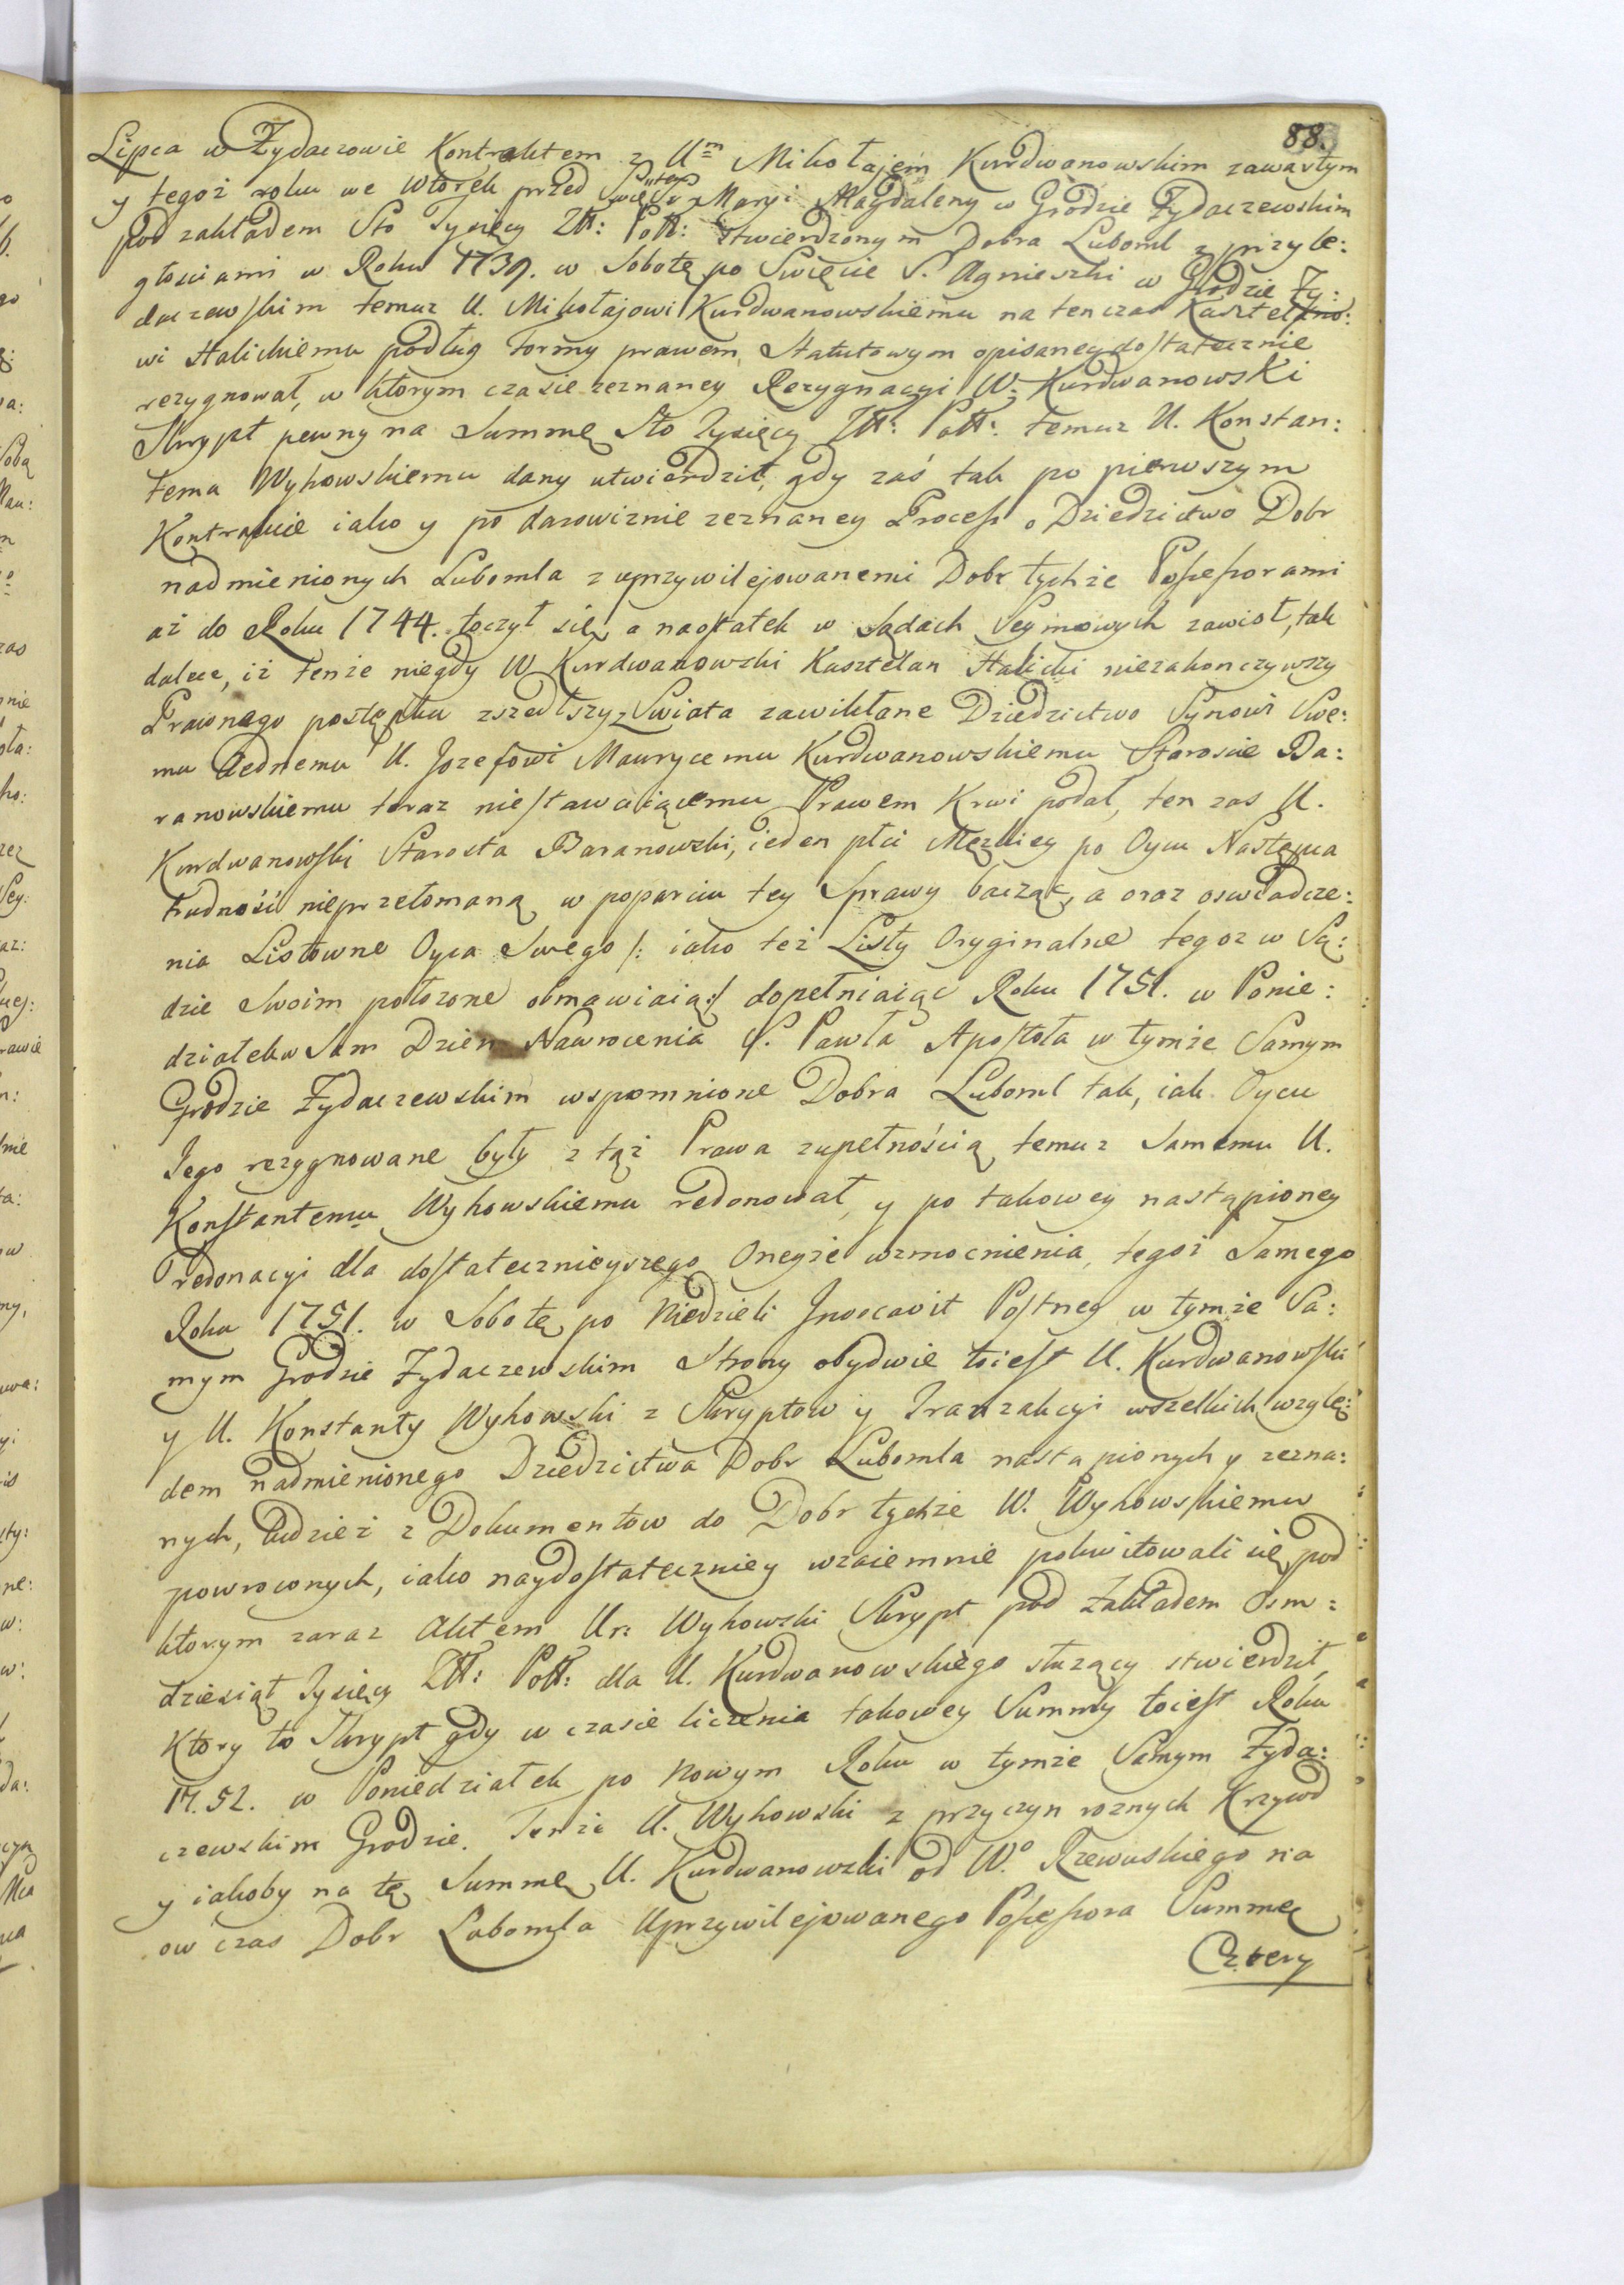 88.
Lipca w Żydaczowie Kontraktem z U͞m Mikołajem Kurdwanowskim zawartym
y tegoż roku we Wtorek przed Maryi Magdaleny w Grodzie Żydaczewskim
pod zakładem Sto Tysięcy Złł: Poll: stwierdzonym Dobra Luboml z przyle:
głościami w Roku 1739. w Sobotę po Święcie S. Agnieszki w Grodzie Ży:
daczewskim temuz U. Mikołajowi Kurdwanowskiemu na ten czas Kasztelano:
wi Halickiemu podług formy prawem Statutowym opisaney dostatecznie
rezygnował, w ktorym czasie zeznaney Rezygnacyi W: Kurdwanowski
Skrypt pewny na Summę Sto Tysięcy Złł: Poll: temuz U. Konstan:
temu Wyhowskiemu dany utwierdził, gdy zaś tak po pierwszym
Kontrakcie iako y po darowiznie zeznaney Process o Dziedzictwo Dobr
nadmienionych Lubomla z uprzywilejowanemi Dobr tychże Possessorami
aż do Roku 1744. toczył się, a naostatek w Sądach Seymowych zawisł, tak
dalece, iż tenże niegdy W Kurdwanowski Kasztelan Halicki niezakonczywszy
Prawnego postępku zszedłszy z Swiata zawikłane Dziedzictwo Synowi Swe:
mu Jednemu U. Jozefowi Maurycemu Kurdwanowskiemu Staroscie Ba:
ranowskiemu teraz niestawaiącemu Prawem Krwi podał, ten zas U.
Kurdwanowski Starosta Baranowski, ieden płci Męzkiey po Oycu Następca
trudność nieprzełomaną w poparciu tey Sprawy bacząc, a oraz oswiadcze:
nia Listowne Oyca Swego /: iako też Listy Oryginalne tegoz w Są:
dzie Swoim położone obmawiaią:/ dopełniaiąc Roku 1751. w Ponie:
działek w Sam Dzień Nawrocenia S. Pawła Apostoła w tymże Samym
Grodzie Żydaczewskim wspomnione Dobra Luboml tak, iak Oycu
Jego rezygnowane były z tąż Prawa zupełnością temuz Samemu U.
Konstantemu Wyhowskiemu redonował, y po takowey nastąpioney
redonacyi dla dostatecznieyszego Oneyże wzmocnienia, tegoż Samego
Roku 1751. w Sobotę po Niedzieli Jnvocavit Postney w tymże Sa:
mym Grodzie Żydaczewskim Strony obydwie toiest U. Kurdwanowski
y U. Konstanty Wyhowski z Skryptow y Tranzakcyi wszelkich wzglę:
dem nadmienionego Dziedzictwa Dobr Lubomla nastąpionych y zezna:
nych, tudzież z Dokumentow do Dobr tychże W. Wyhowskiemu
powroconych, iako naydostateczniey wzaiemnie pokwitowali się, pod
ktorym zaraz Aktem Ur: Wyhowski Skrypt pod Zakładem Osm:
dziesiąt Tysięcy Złł: Poll: dla U. Kurdwanowskiego służący stwierdził,
Ktory to Skrypt gdy w czasie liczenia takowey Summy toiest Roku
17.52. w Poniedziałek po Nowym Roku w tymże Samym Żyda:
czewskim Grodzie. Tenże U. Wyhowski z przyczyn roznych Krzywd
y iakoby na tę Summę U. Kurdwanowski od W.º Rzewuskiego na
ow czas Dobr Lubomla Uprzywilejowanego Possessora Summę
Cztery